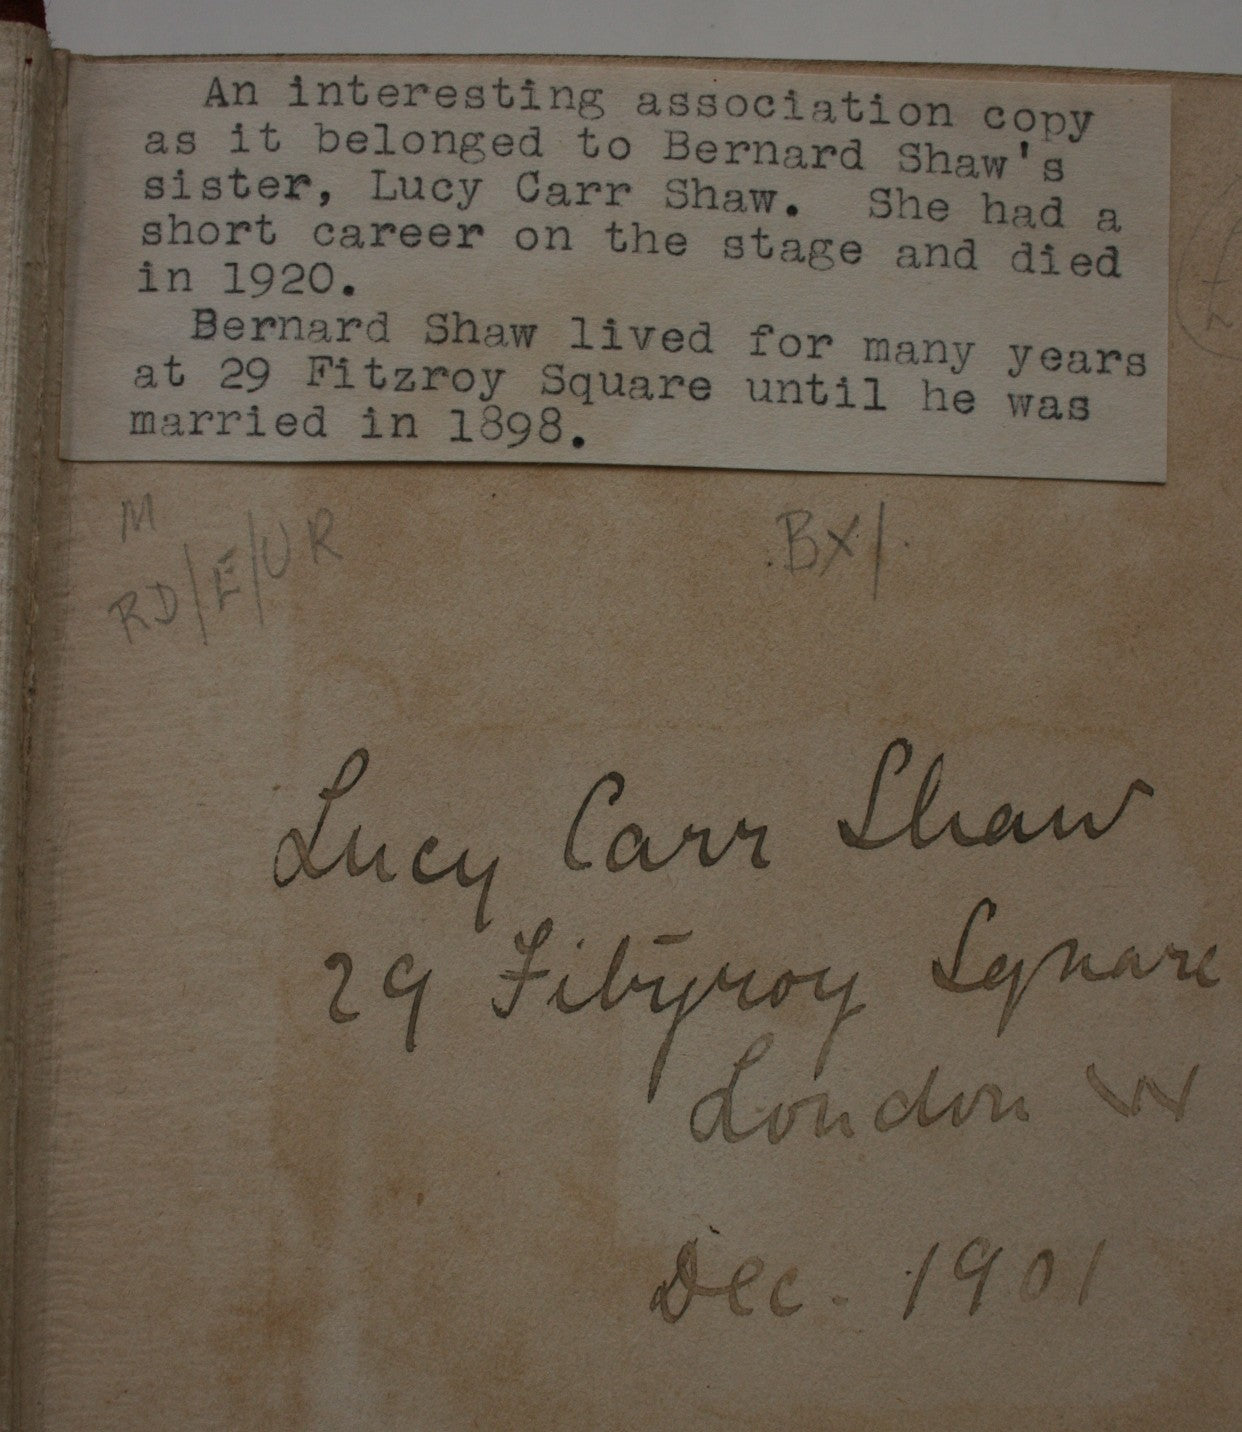 An interesting association copy
as it belonged to Bernard Shaw's
sister, Lucy Carr Shaw.  She had a
short career on the stage and died
in 1920.
Bernard Shaw lived for many years
at 29 Fitzroy Square until he was
married in 1898.
M
RD/E/UR
BX/.
Lucy Carr Shaw
29 Fitzroy Square
London W
Dec. 1901